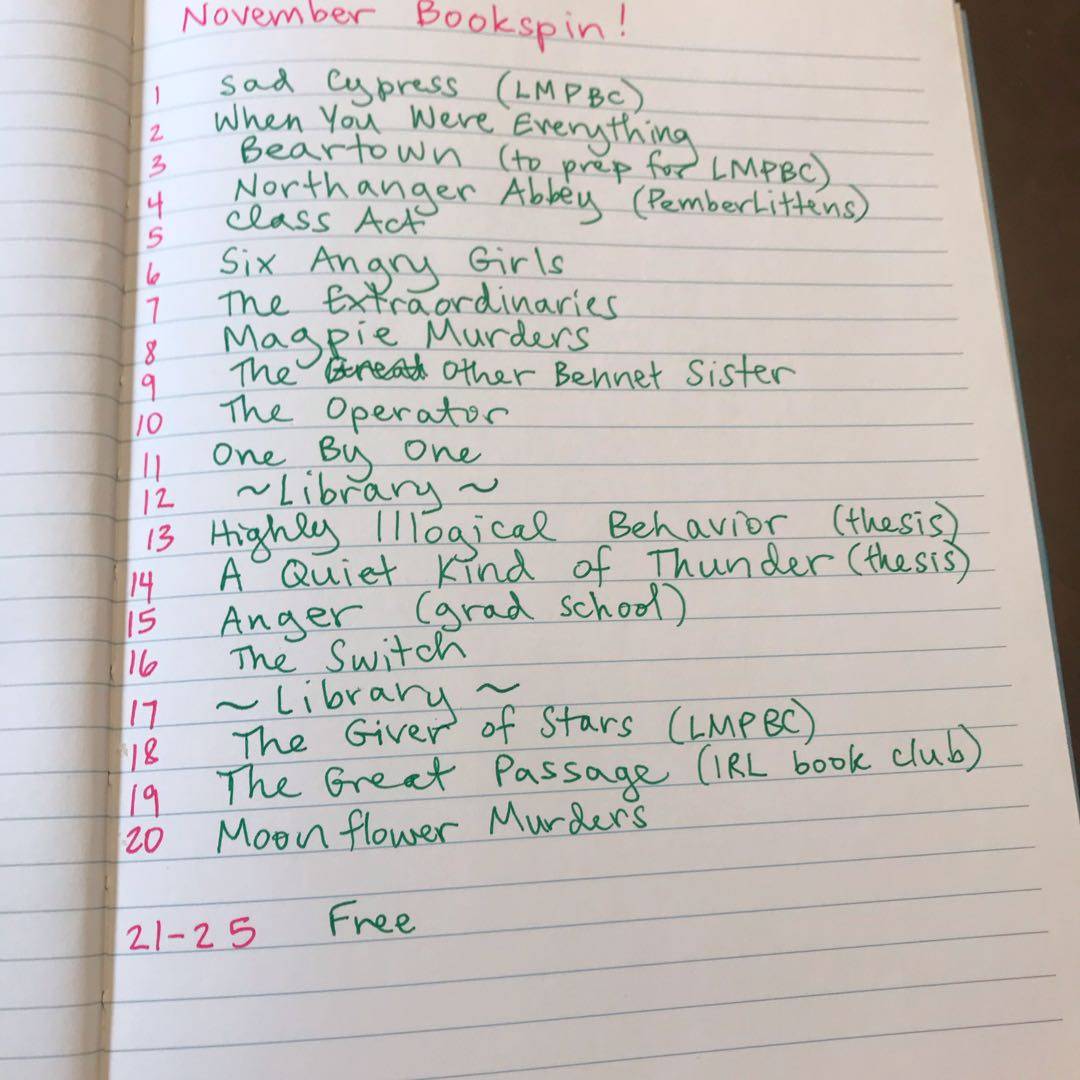 November Bookspin!
1 Sad Cypress (LMPBC)
2 When You Were Everything
3 Beartown (to prep for LMPBC)
4 Northanger Abbey (PemberLittens)
5 Class Act
6 Six Angry Girls
7 The Extraordinaries
8 Magpie Murders
9 The Great Other Bennet Sister
10 The Operator
11 One By One
12 ~Library~
13 Highly Illogical Behavior (thesis)
14 A Quiet Kind of Thunder (thesis)
15 Anger (grad school)
16 The Switch
17 ~Library~
18 The Giver of Stars (LMPBC)
19 The Great Passage (IRL book club)
20 Moonflower Murders
21-25 Free